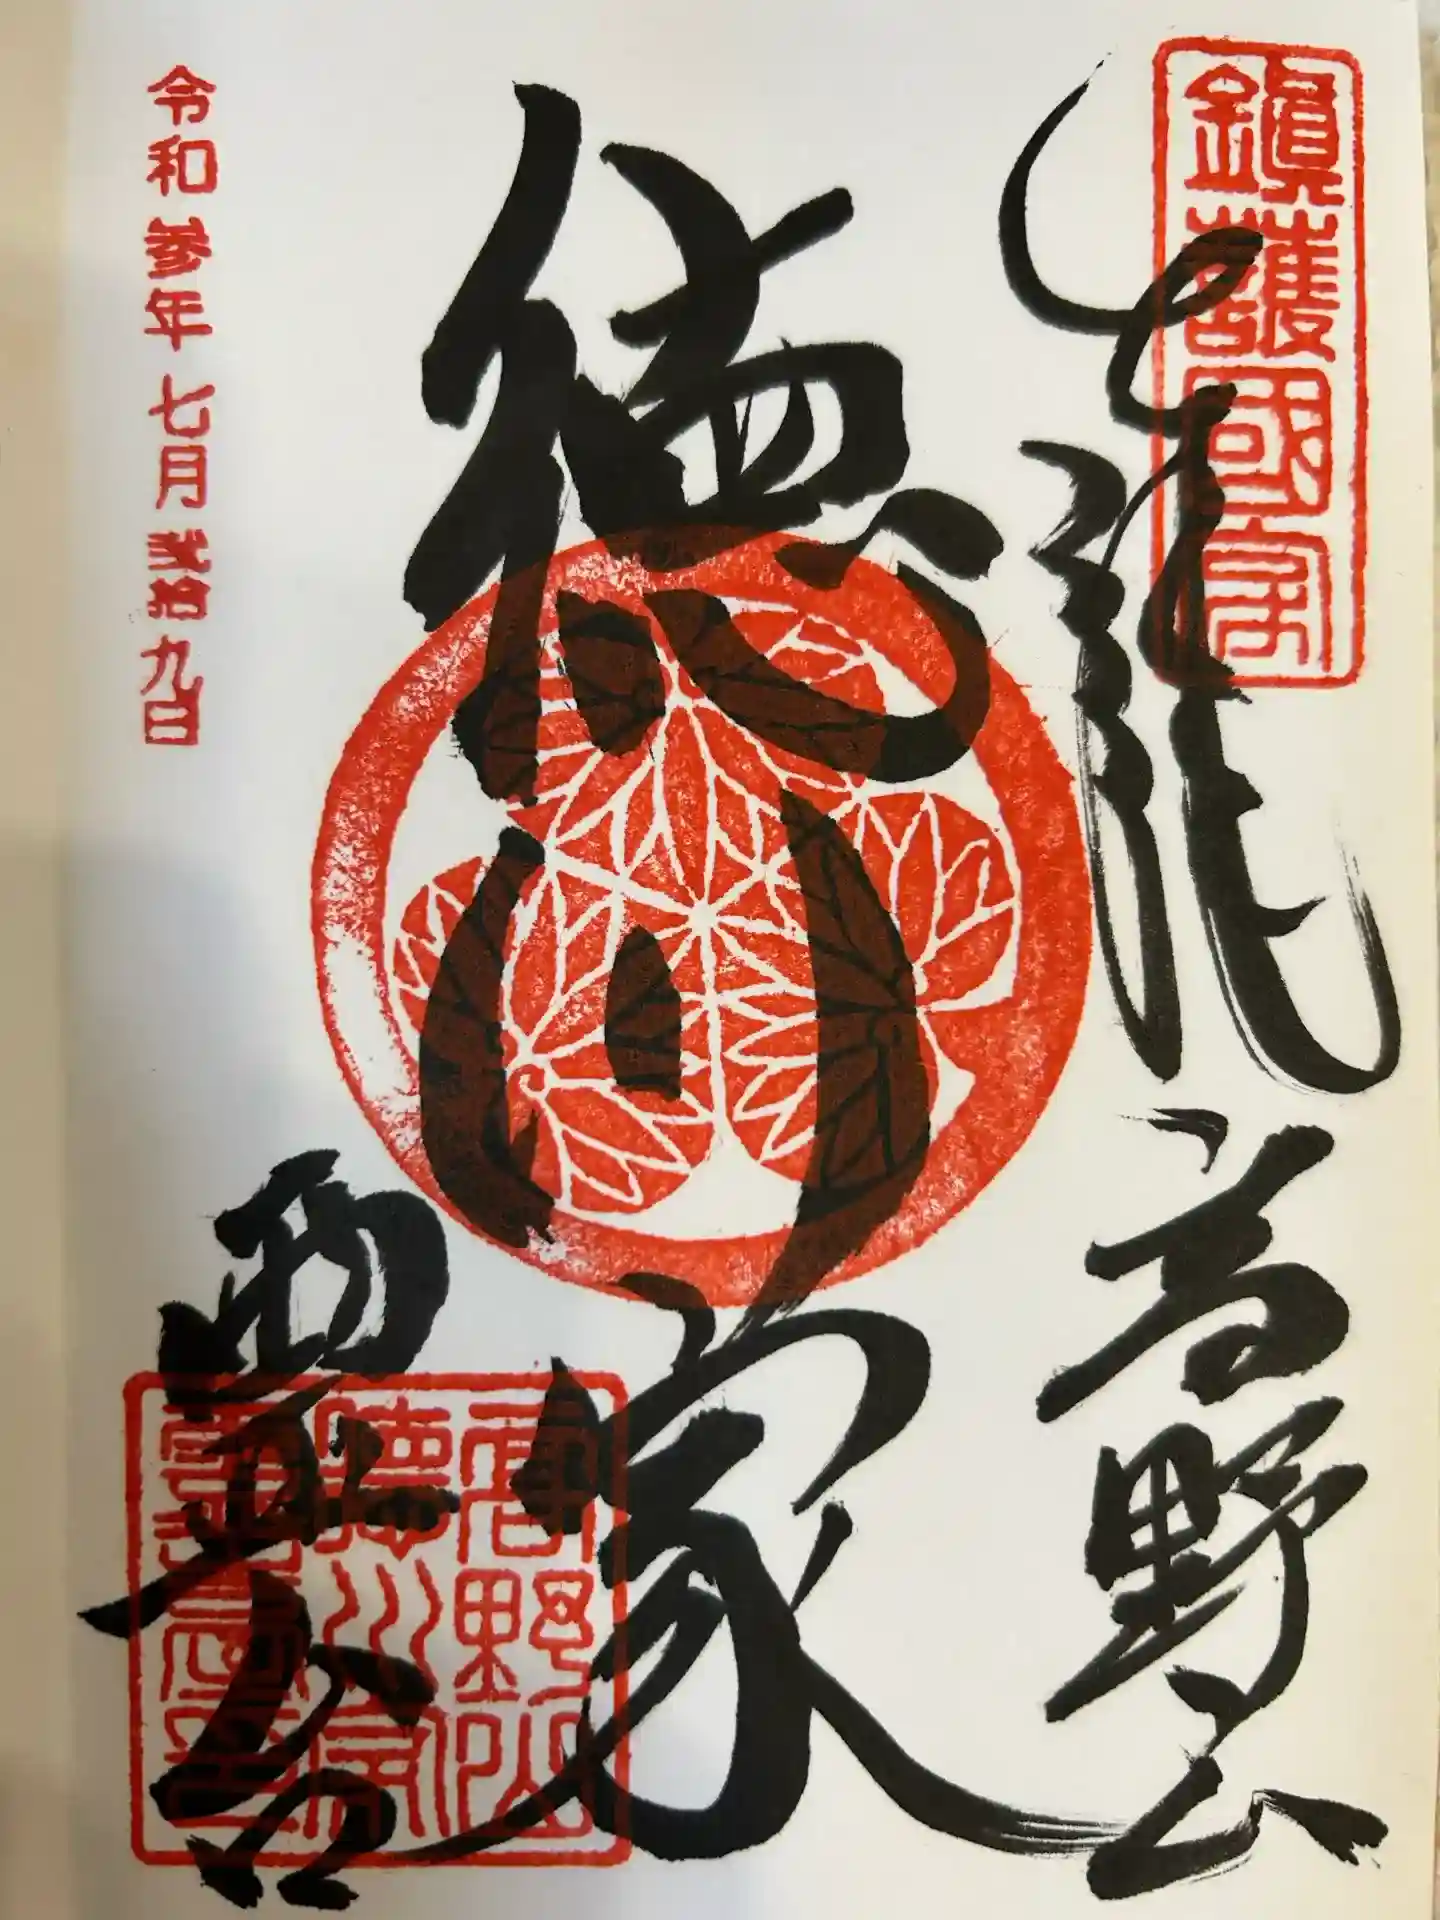 鎭護國家
高野山
徳川家
霊台
高野山
徳川家
令和参年七月弐拾九日